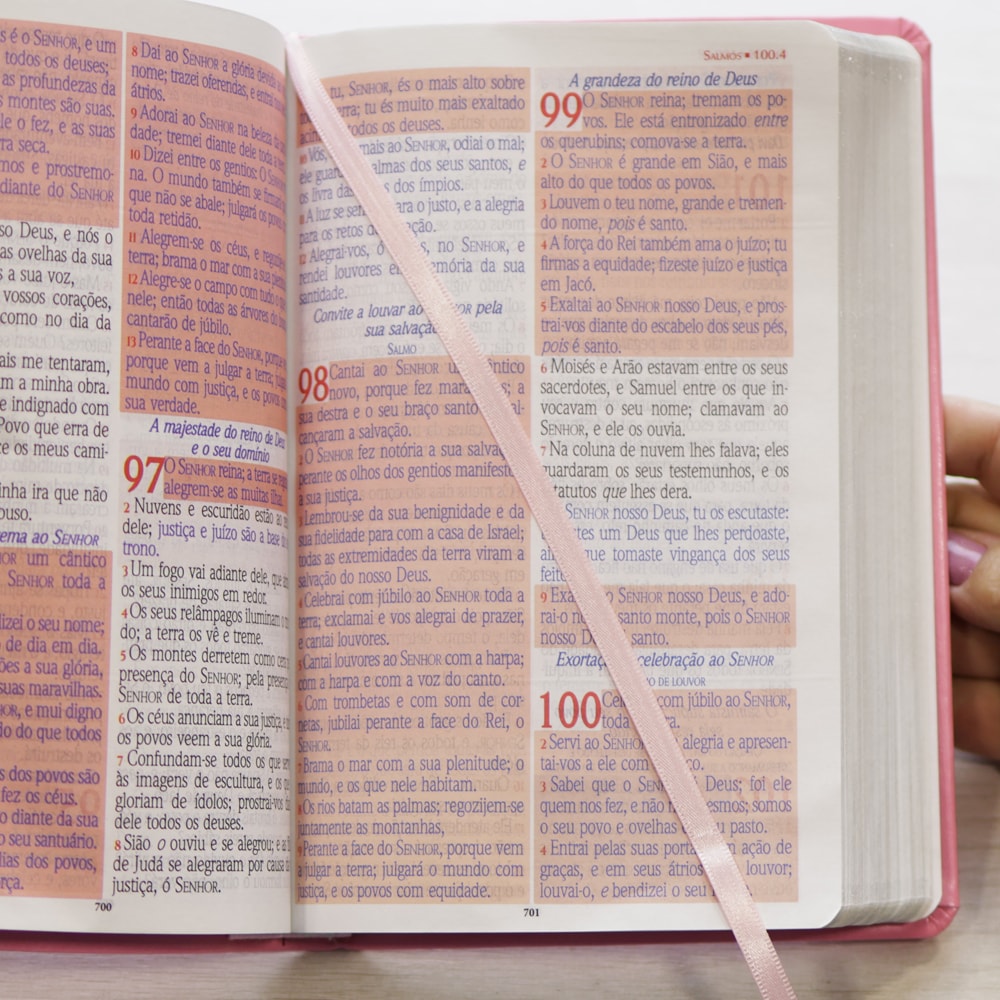 s é o SENHOR, e um
todos os deuses;
as profundezas da
montes são suas.
le o fez, e as suas
ra seca.
mos e prostremo-
diante do SENHOR
so Deus, e nós o
as ovelhas da sua
s a sua voz,
vossos corações,
como no dia da
ais me tentaram,
m a minha obra.
e indignado com
Povo que erra de
ce os meus cami-
inha ira que não
ouso.
rema ao SENHOR
OR um cântico
SENHOR toda a
dizei o seu nome;
o de dia em dia,
ões a sua glória,
suas maravilhas.
OR, e mui digno
do do que todos
s dos povos são
fez os céus.
o diante da sua
o seu santuário.
lias dos povos,
rça.
8 Dai ao SENHOR a glória devida ao
nome; trazei oferendas, e entrai
átrios.
9 Adorai ao SENHOR na beleza da
dade; tremei diante dele toda a
10 Dizei entre os gentios: O SENHOR
na. O mundo também se firmará
que não se abale; julgará os povos
toda retidão.
11 Alegrem-se os céus, e regozije
terra; brama o mar com a sua plenitude
12 Alegre-se o campo com tudo o que
nele; então todas as árvores do
cantarão de júbilo.
13 Perante a face do SENHOR, porque
porque vem a julgar a terra; julgará
mundo com justiça, e os povos com
sua verdade.
A majestade do reino de Deus
e o seu domínio
97 O SENHOR reina; a terra se regozije
alegrem-se as muitas ilhas.
2 Nuvens e escuridão estão ao
dele; justiça e juízo são a base
trono.
3 Um fogo vai adiante dele, que
os seus inimigos em redor.
4 Os seus relâmpagos iluminam o
do; a terra os vê e treme.
5 Os montes derretem como cera
presença do SENHOR; pela presença
SENHOR de toda a terra.
6 Os céus anunciam a sua justiça, e
os povos veem a sua glória.
7 Confundam-se todos os que
às imagens de escultura, e os que
gloriam de ídolos; prostrai-vos
dele todos os deuses.
8 Sião o ouviu e se alegrou; e as
de Judá se alegraram por causa da
justiça, ó SENHOR.
700
SALMOS ▪ 100:4
tu, SENHOR, és o mais alto sobre
terra; tu és muito mais exaltado
acima todos os deuses.
10 Vós, mais ao SENHOR, odiai o mal;
ele guarda almas dos seus santos, e
os livra das dos ímpios.
11 A luz se para o justo, e a alegria
para os retos de coração.
12 Alegrai-vos, ó no SENHOR, e
rendei louvores memória da sua
santidade.
Convite a louvar ao SENHOR pela
sua salvação
SALMO
98 Cantai ao SENHOR um cântico
novo, porque fez maravilhas; a
sua destra e o seu braço santo al-
cançaram a salvação.
2 O SENHOR fez notória a sua salvação
perante os olhos dos gentios manifestou
a sua justiça.
3 Lembrou-se da sua benignidade e da
sua fidelidade para com a casa de Israel;
todas as extremidades da terra viram a
salvação do nosso Deus.
4 Celebrai com júbilo ao SENHOR toda a
terra; exclamai e vos alegrai de prazer,
e cantai louvores.
5 Cantai louvores ao SENHOR com a harpa;
com a harpa e com a voz do canto.
6 Com trombetas e com som de cor-
netas, jubilai perante a face do Rei, o
SENHOR.
7 Brama o mar com a sua plenitude; o
mundo, e os que nele habitam.
8 Os rios batam as palmas; regozijem-se
juntamente as montanhas,
9 Perante a face do SENHOR, porque vem
a julgar a terra; julgará o mundo com
justiça, e os povos com equidade.
A grandeza do reino de Deus
99 O SENHOR reina; tremam os po-
vos. Ele está entronizado entre
os querubins; comova-se a terra.
2 O SENHOR é grande em Sião, e mais
alto do que todos os povos.
3 Louvem o teu nome, grande e tremen-
do nome, pois é santo.
4 A força do Rei também ama o juízo; tu
firmas a equidade; fizeste juízo e justiça
em Jacó.
5 Exaltai ao SENHOR nosso Deus, e pros-
trai-vos diante do escabelo dos seus pés,
pois é santo.
6 Moisés e Arão estavam entre os seus
sacerdotes, e Samuel entre os que in-
vocavam o seu nome; clamavam ao
SENHOR, e ele os ouvia.
7 Na coluna de nuvem lhes falava; eles
guardaram os seus testemunhos, e os
estatutos que lhes dera.
SENHOR nosso Deus, tu os escutaste:
um Deus que lhes perdoaste,
que tomaste vingança dos seus
feitos
9 Exaltai ao SENHOR nosso Deus, e ado-
rai-o no santo monte, pois o SENHOR
nosso Deus santo.
Exortação celebração ao SENHOR
DE LOUVOR
100 Celebrai com júbilo ao SENHOR,
toda terra.
2 Servi ao SENHOR alegria e apresen-
tai-vos a ele com
3 Sabei que o SENHOR é Deus; foi ele
quem nos fez, e não mesmos; somos
o seu povo e ovelhas do seu pasto.
4 Entrai pelas suas portas em ação de
graças, e em seus átrios louvor;
louvai-o, e bendizei o seu
701